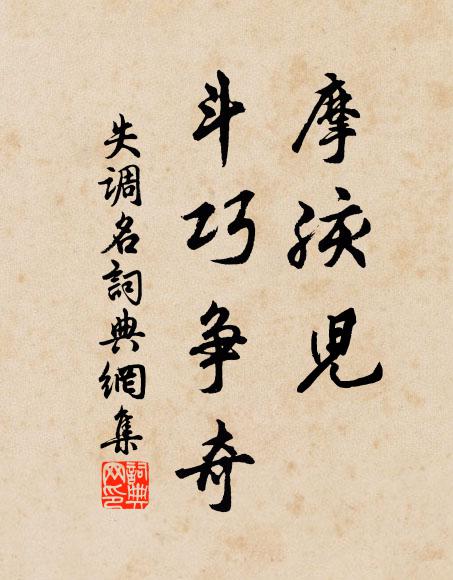 摩孩兒
斗巧争奇
失调名詞典網集
詞典網印